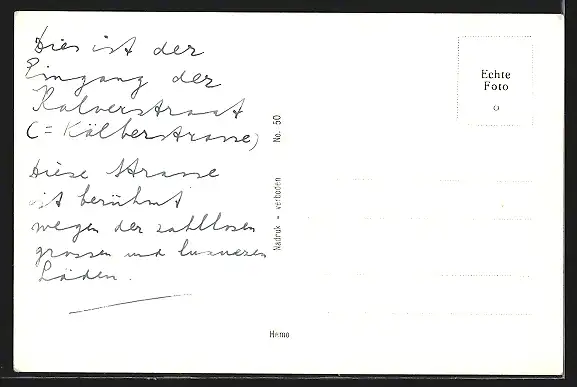 Dies ist der
Eingang der
Kalverstraat
(= Kälberstrasse)
Diese Strasse
ist berühmt
wegen der zahllosen
grossen und luxuriösen
Läden.
Nadruk - verboden No. 50
Hemo
Echte
Foto